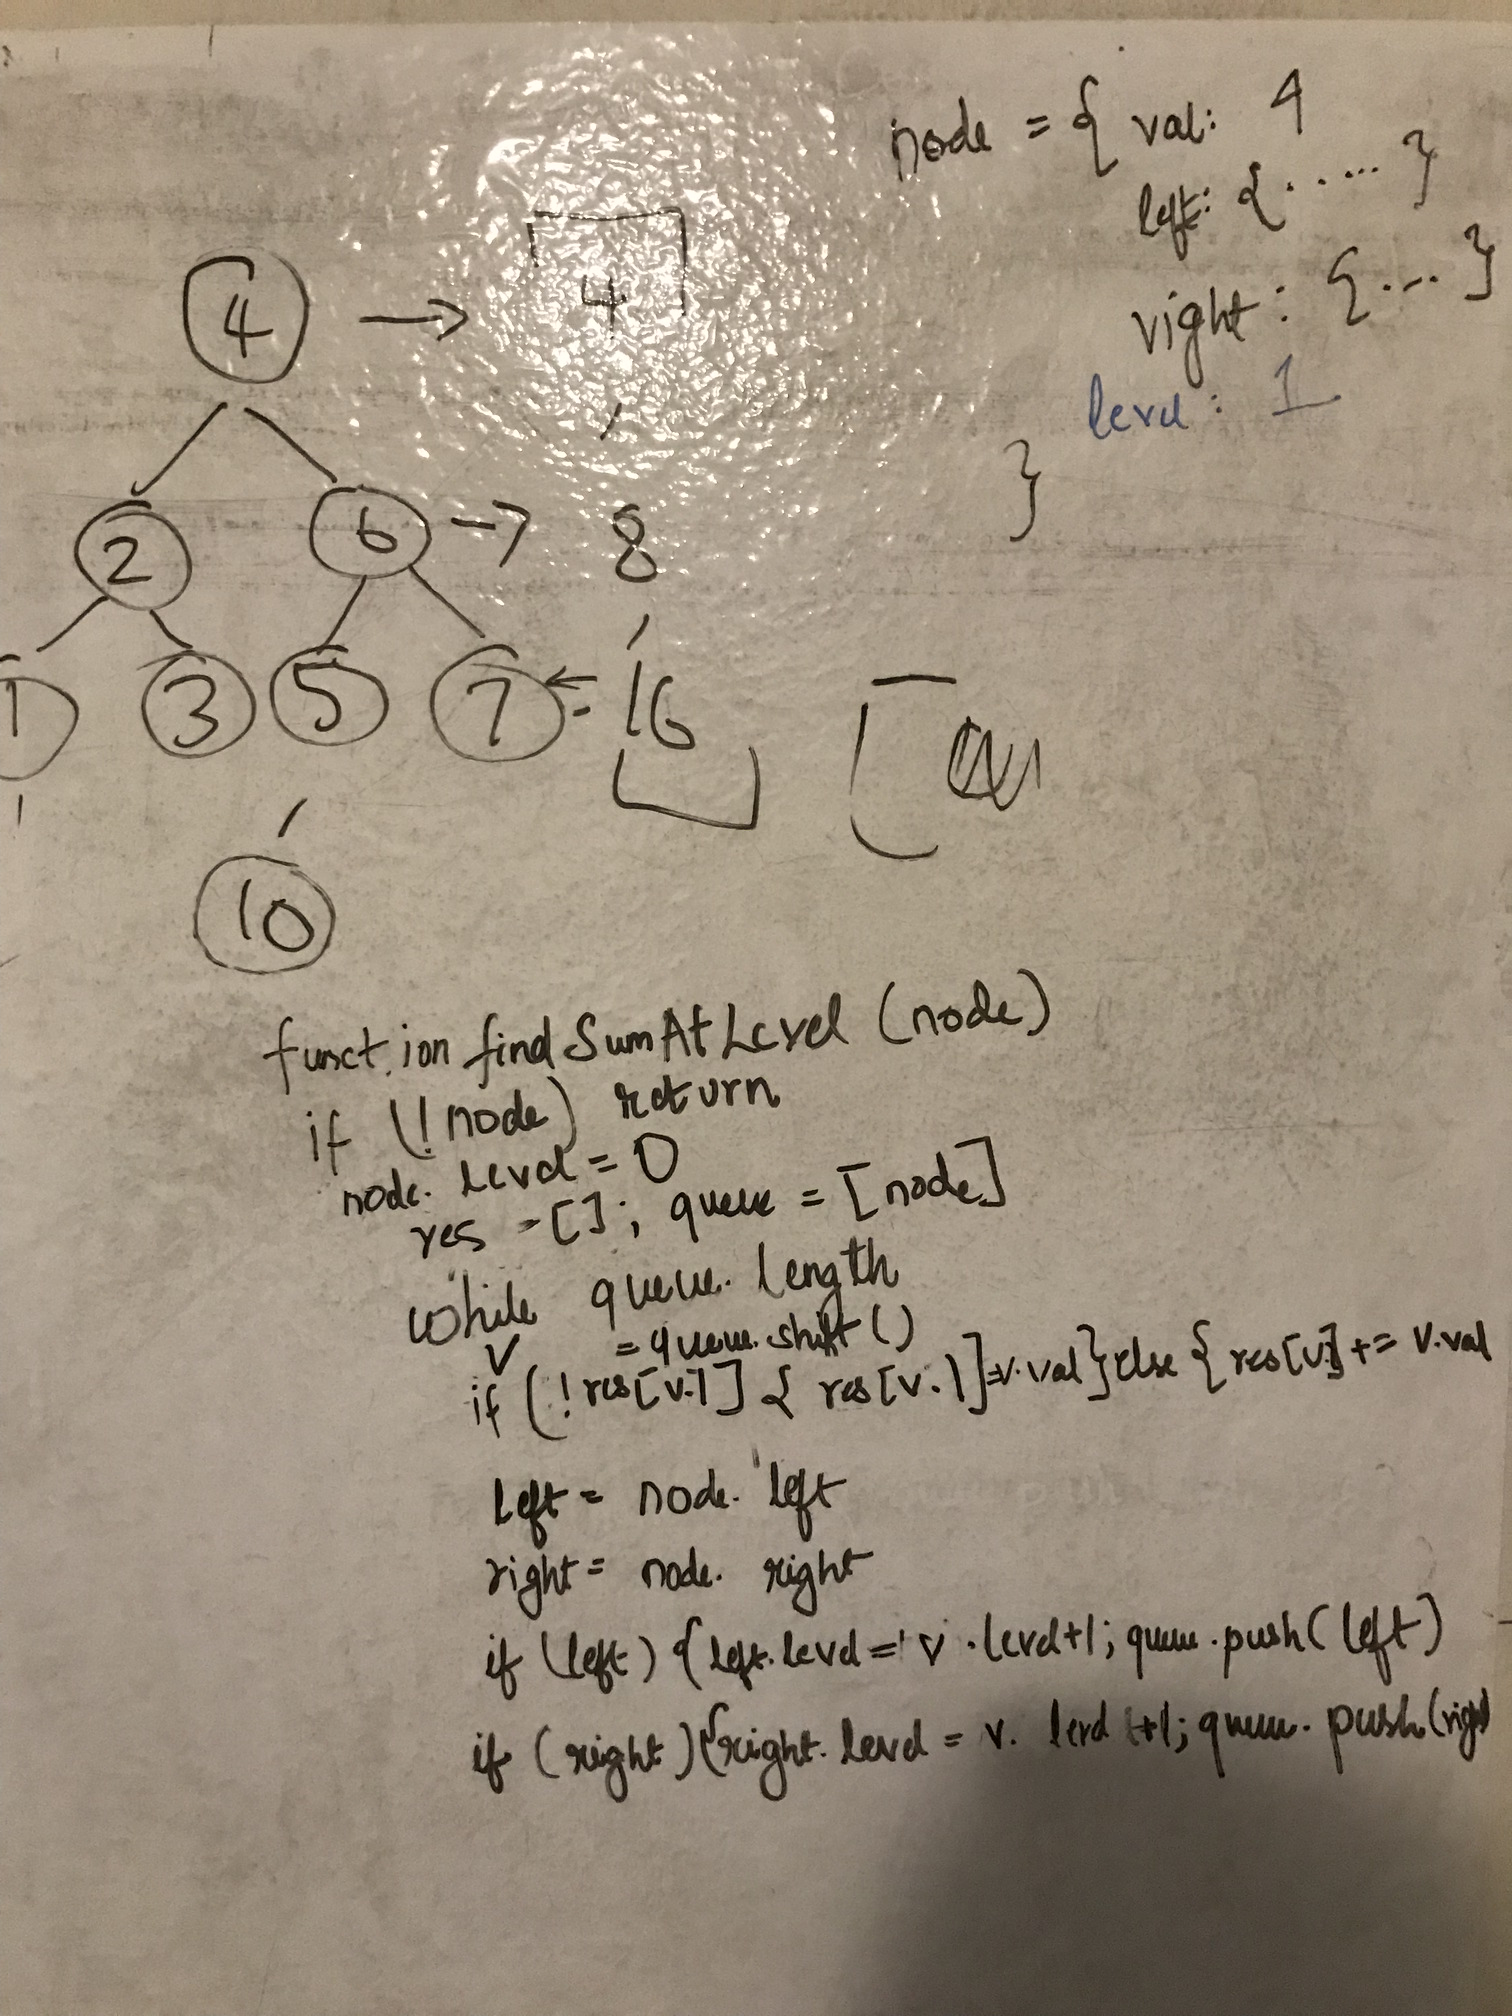 node = { val: 4
left: { ..... }
right: { ... }
level: 1
}
4 → 4
2 6 → 8
1 3 5 7 ← = 16
10
function findSumAtLevel (node)
if (!node) return
node. Level = 0
res = []; queue = [node]
while queue. length
v = queue. shift ()
if (! res[v.l] { res[v.l]=v.val} else { res[v.l] += v.val
left = node. left
right = node. right
if (left) { left.level = v.level+1; queue.push( left)
if (right) { right. level = v. level +1; queue. push(right